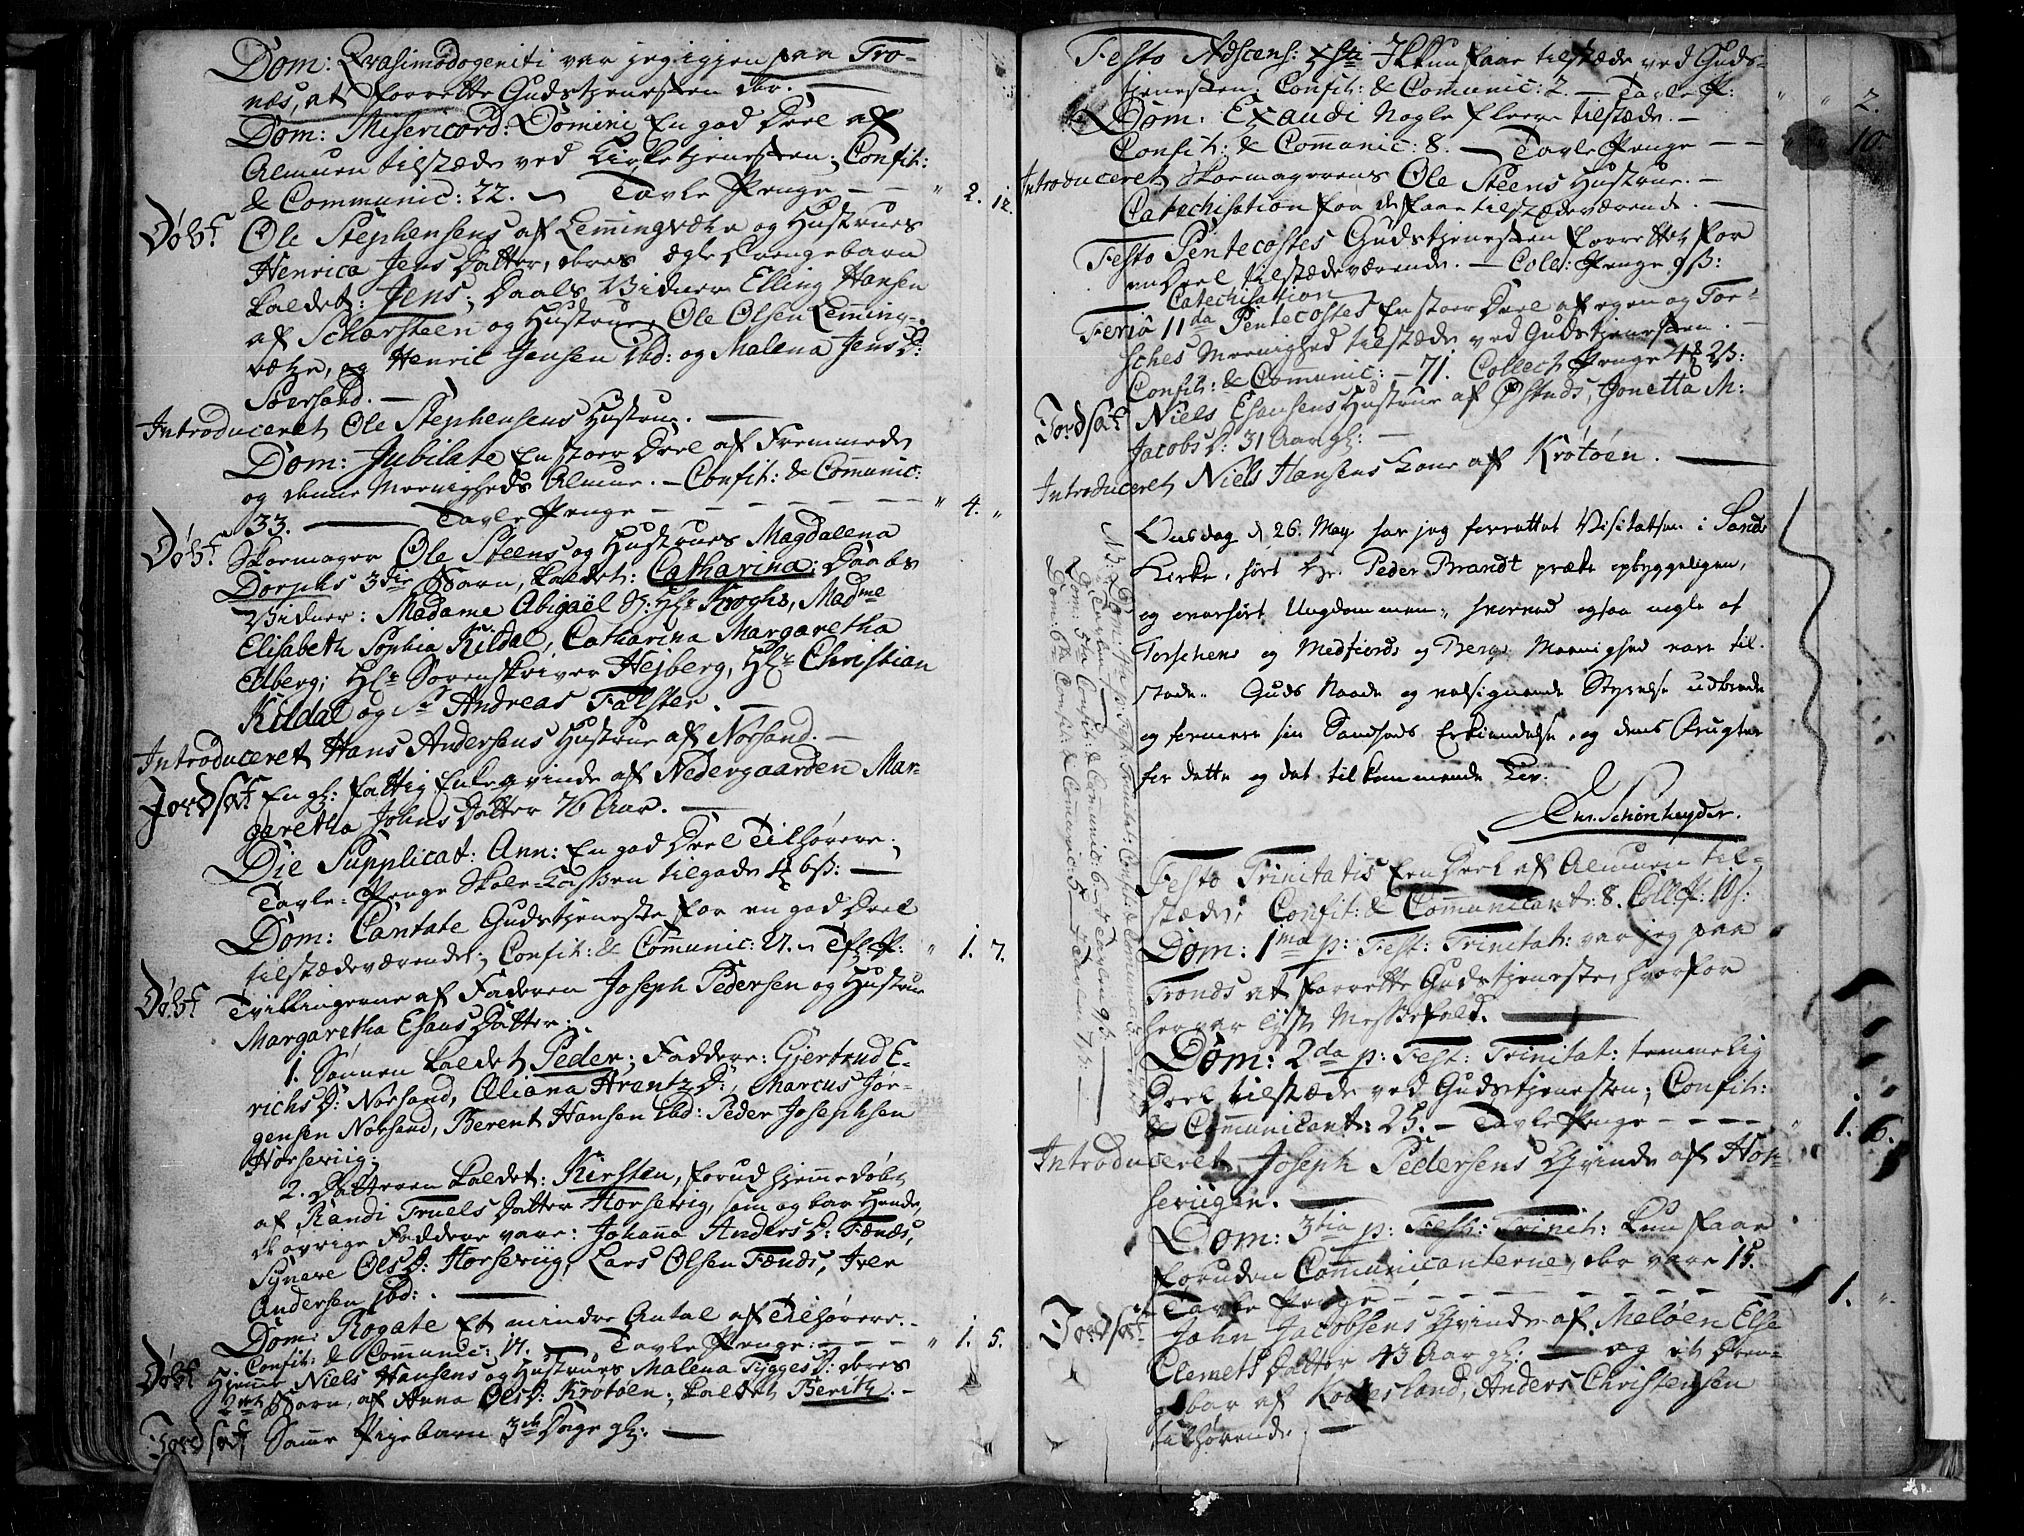 Dom: Qvasimodogeniti var jeg igjen paa Tro-
næs, at forrette Gudstjenesten der. —
Dom: Misericord: Domini En god Deel af
Almuen tilstæde ved Kirketjenesten; Confit:
& Communic: 22. — Tavle Penge — — " 2. 12.
Døbt Ole Stephensens af Lemmingvær og Hustrues
Henrica Jens Datter, deres ægte Drengebarn
kaldet: Jens; Daabs Vidner Elling Hansen
af Scharsteen og Hustrue, Ole Olsen Lemming-
vætze, og Henric Jensen ibd: og Malena Jens D:
Soersand. —
Introduceret Ole Stephensens Hustrue. —
Dom: Jubilate En stoer Deel af Fremmede
og denne Meenigheds Almue. — Confit: & Communic:
33. — Tavle Penge — — — — " 4. "
Døbt Skoemager Ole Steens og Hustrues Magdalena
Dorphs 3die Barn, kaldet: Catharina; Daabs
Vidner: Madame Abigaël Hr Kroghs, Madme
Elisabeth Sophia Kildal, Catharina Margaretha
Edberg; Hr Sorenskriver Hejberg, Hr Christian
Kildal og Sr Andreas Falster. —
Introduceret Hans Andersens Hustrue af Norsand. —
Jordsat En gl: fattig Enkeqvinde af Nedergaarden Mar-
garetha Johns Datter 76 Aar. —
Die Supplicat: Ann: En god Deel Tilhørere;
Tavle-Penge Skole-Cassen tilgode 4 6 ß: —
Dom: Cantate Gudstjeneste for en god Deel
tilstædeværende; Confit: & Communic: 21. — Tfl P: " 1. 7.
Døbt Tvillingerne af Faderen Joseph Pedersen og Hustrue
Margaretha Esaus Datter:
1. Sønnen kaldet Peder; Faddere: Gjertrud E-
richs D: Norsand, Æliana Arentz D:, Marcus Jør-
gensen Norsand, Berent Hansen ibd: Peder Josephsen
Horseviig;
2. Datteren kaldet: Kirsten, forud hjemmedøbt
af Randi Truels Datter Horsevig, som og bar Hende,
de øvrige Faddere vare: Johanna Anders D: Fænes,
Synave Ols D: Horseviig, Lars Olsen Fænds, Iver
Andersen ibd:. —
Dom: Rogate Et mindre Antal af Tilhørere. —
Confit: & Communic: 17. — Tavle Penge: — — " 1. 5.
Døbt Hjemme Niels Hansens og Hustrues Malena Tygges D: deres
2det Barn, af Anna Ols D: Krotøen; kaldet Berith. —
Jordsat Samme Pigebarn 3de Dage gl: —
Festo Adscens: Xsti Ikkun faae tilstæde ved Guds-
tjenesten; Confit: & Communic: 2. — Tavle P: " " 2.
Dom: Exaudi Nogle fleere tilstæde. —
Confit: & Communic: 8. — Tavle Penge — — " " 10
Introduceret Skoemagerens Ole Steens Hustrue. —
Catechisation for de faae tilstædeværende. —
Festo Pentecostes Gudstjenesten forrettet for
en Deel tilstædeværende. — Coll: Penge 9 ß:
Catechisation
Feriâ 11da Pentecostes En stoer Deel af egen og Tor-
sches Meenighed tilstæde ved Gudstjenesten. —
Confit: & Communic: — 71. Collect Penge 4 2 ß:
Jordsat Niels Esausens Hustrue af Østnds, Jonetta M:
Jacobs D: 31 Aar gl: —
Introduceret Niels Hansens Kone af Krotøen. —
Onsdag d. 26. May har jeg forrettet Visitatsen i Sands
Kirke, hørt Hr. Peder Brandt præke opbyggeligen,
og overhørt Ungdommen, hvorved ogsaa nogle af
Torschens og Medfiords og Bergs Meenighed vare til-
stæde. Guds Naade og velsignende Styrelse udbrede
og formere sin Sandheds Erkiendelse, og dens Frugter
for dette og det tilkommende Liv.
Chr. Schønheyder.
Festo Trinitatis En Deel af Almuen til-
stæde; Confit: & Communicant: 8. Coll P: 10 ß:
Dom: 1ma p: Fest: Trinitat: var jeg paa
Tronds at forrette Gudstjeneste, hvorfor
her var lyst Messefald. —
Dom: 2da p: Fest: Trinitat: temmelig
Deel tilstæde ved Gudstjenesten; Confit:
& Communicant: 25. — Tavle Penge — — — " 1. 6.
Introduceret Joseph Pedersens Qvinde af Hor-
seviigen. —
Dom: 3tia p: Fest: Trinit: kun faae
foruden Communicanterne, der vare 15.
Tavle Penge — — — — — — 1. "
Jordsat John Jacobsens Qvinde af Meløen Else
Clemets Datter 43 Aar gl: — og et Dren-
gebar af Kodesland, Anders Christensen
tilhørende. —
NB Dom: 4ta p: Fest: Trinitat: Confit: & Communic:
Dom: 5ta Confit: & Communic: 6. — Tavlen 9 ß: —
Dom: 6ta Confit: & Communic: 5 — Tavlen 7 ß: —